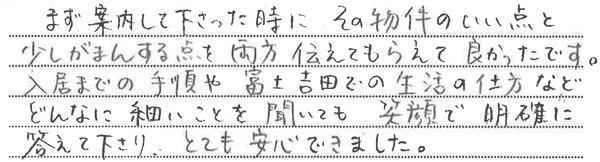 まず案内して下さった時に その物件のいい点と
少しがまんする点を 両方 伝えてもらえて 良かったです。
入居までの 手順や 富士吉田での 生活の仕方など
どんなに 細いことを 聞いても 笑顔で 明確に
答えて下さり、とても 安心できました。